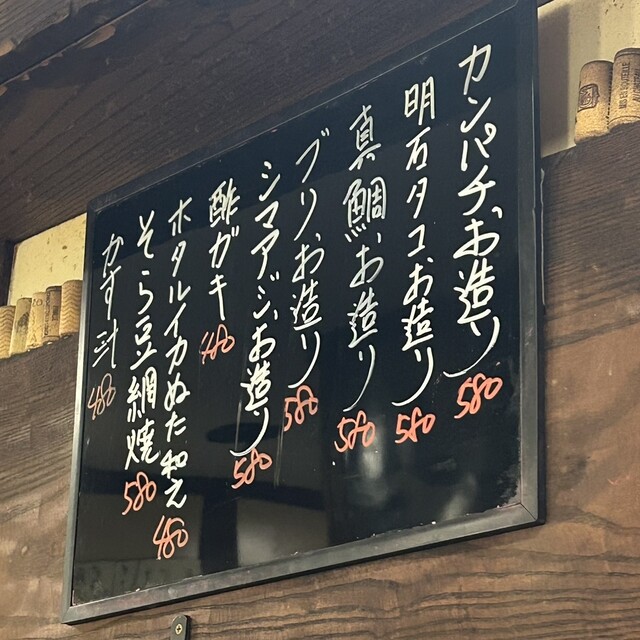 カンパチお造り 580
明石タコお造り 580
真鯛お造り 580
ブリお造り 580
シマアジお造り 580
酢ガキ 480
ホタルイカぬた和え 480
そら豆網焼 580
かす汁 480